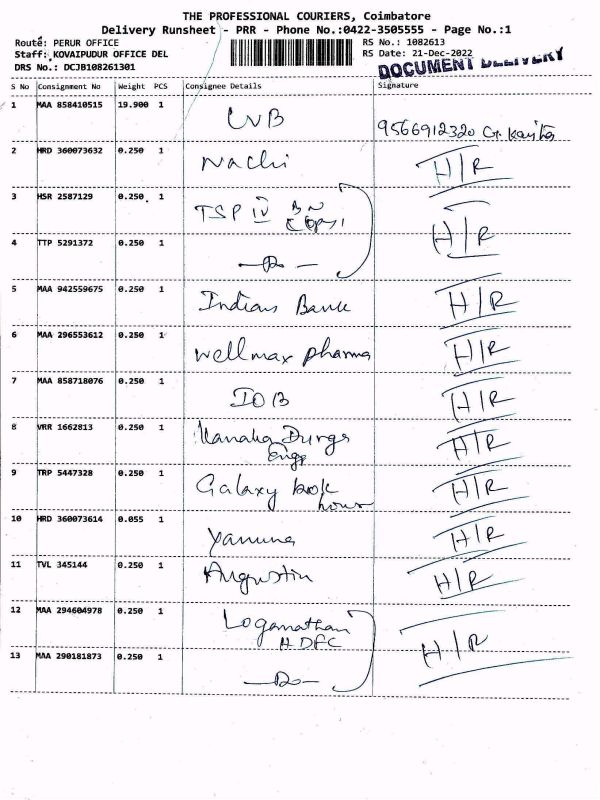 THE PROFESSIONAL COURIERS, Coimbatore
Delivery Runsheet - PRR - Phone No.:0422-3505555 - Page No.:1
Route: PERUR OFFICE
Staff: KOVAIPUDUR OFFICE DEL
DRS No.: DCJB108261301
RS No.: 1082613
RS Date: 21-Dec-2022
DOCUMENT DELIVERY
S No Consignment No Weight PCS Consignee Details Signature
1 MAA 858410515 19.900 1 LVB 9566912320
2 HRD 360073632 0.250 1 Nachi H/R
3 HSR 2587129 0.250 1 TSP IV BN
4 TTP 5291372 0.250 1 H/R
5 MAA 942559675 0.250 1 Indian Bank H/R
6 MAA 296553612 0.250 1 Wellmax pharma H/R
7 MAA 858718076 0.250 1 IOB H/R
8 VRR 1662813 0.250 1 Kanaka Durga H/R
Engg
9 TRP 5447328 0.250 1 Galaxy book H/R
house
10 HRD 360073614 0.055 1 Yamuna H/R
11 TVL 345144 0.250 1 Augustin H/R
12 MAA 294604978 0.250 1 Loganathan H/R
HDFC
13 MAA 290181873 0.250 1 -Do-